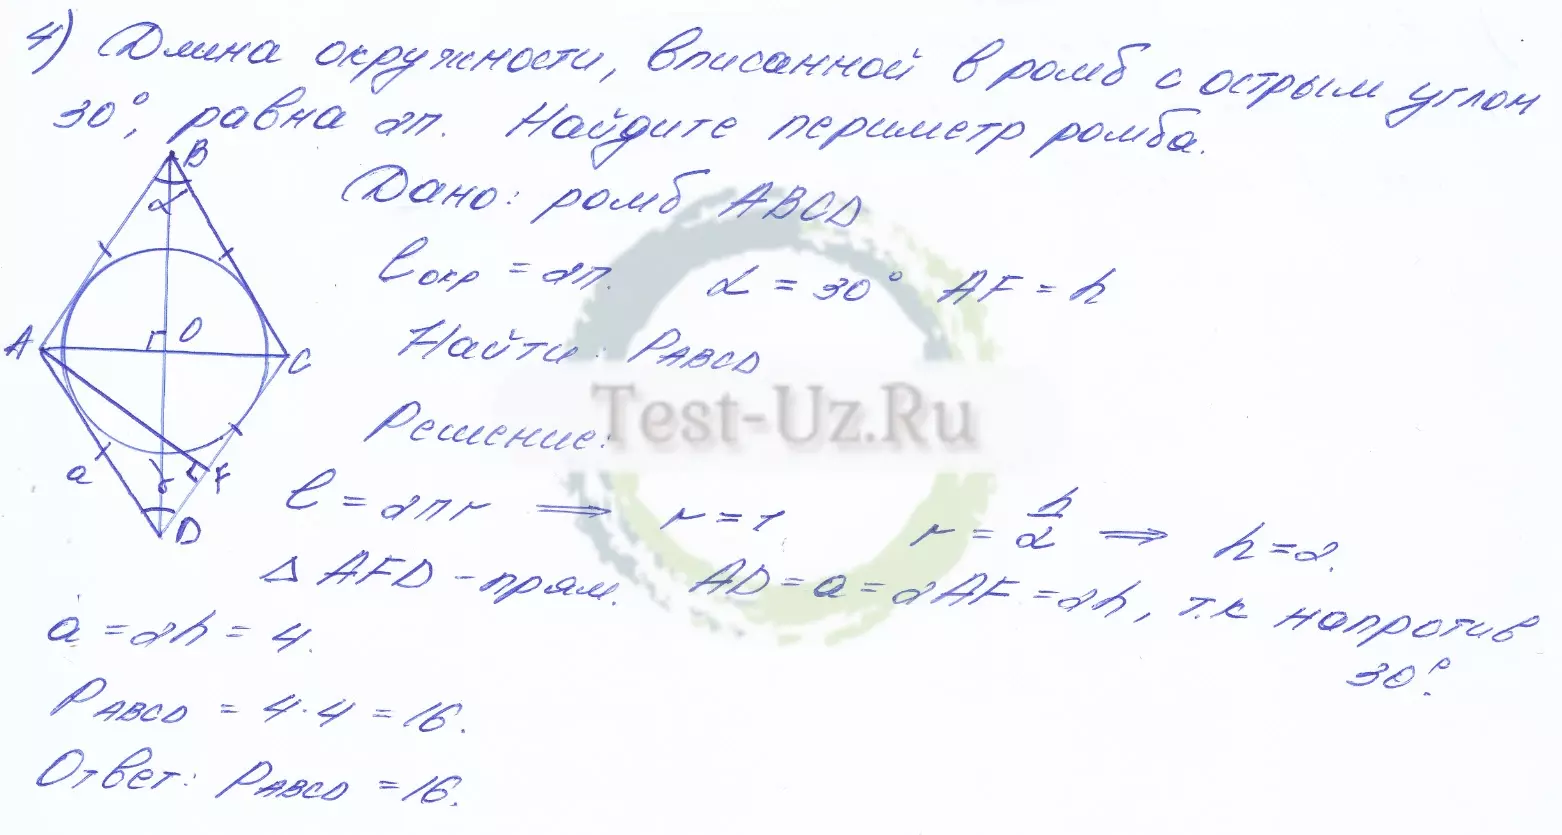 4) Длина окружности, вписанной в ромб с острым углом
30°, равна 2π. Найдите периметр ромба.
B
α
A
O
C
a
F
D
Дано: ромб ABCD
lокр = 2π. α = 30° AF = h
Найти: PABCD
Test-Uz.Ru
Решение:
l = 2πr ⟹ r = 1 r = h/2 ⟹ h = 2.
Δ AFD - прям. AD = a = 2AF = 2h, т.к напротив
30°.
a = 2h = 4.
PABCD = 4·4 = 16.
Ответ: PABCD = 16.